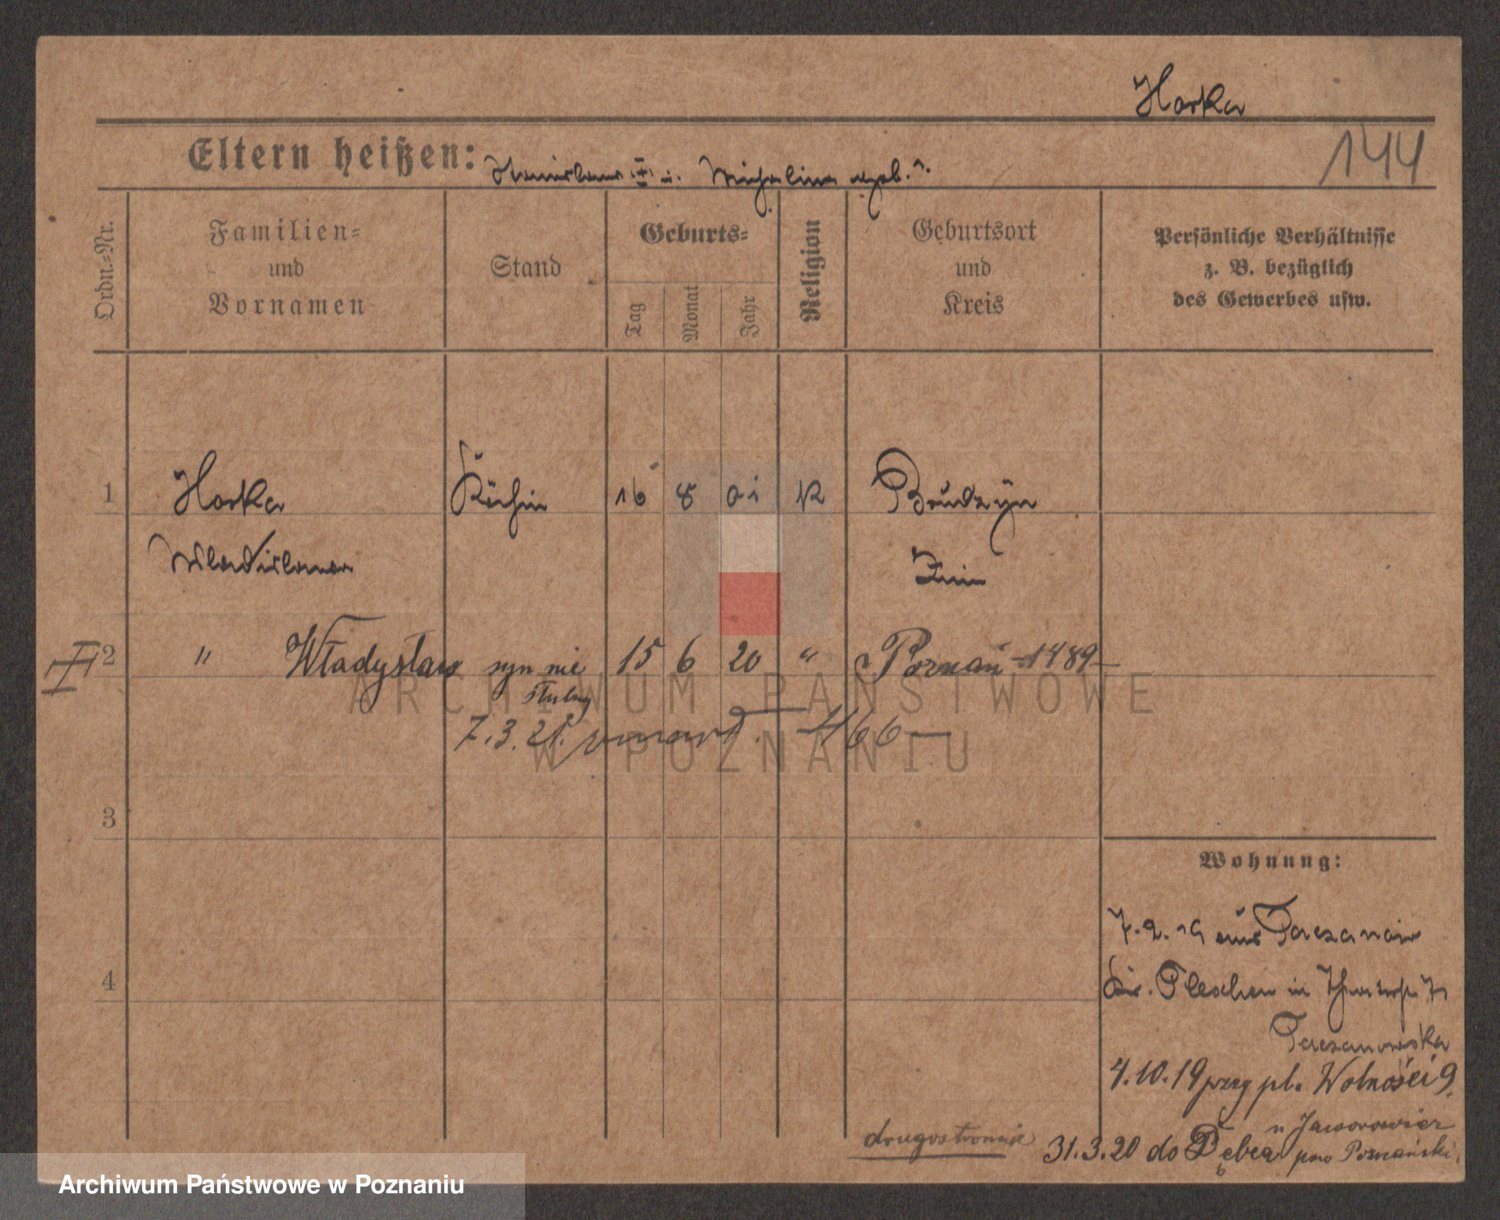 Horka
144
Eltern heißen: Stanislaus u. Michalina geb. ?
Ordn.-Nr.
Familien-
und
Vornamen
Stand
Geburts-
Tag
Monat
Jahr
Religion
Geburtsort
und
Kreis
Persönliche Verhältnisse
z. B. bezüglich
des Gewerbes usw.
1
Horka
Wladislawa
Köchin
16 8 01 K
Brudzyn
Znin
II
2
" Władysław syn nie 15 6 20 " Poznań 1489
ślubny
7.3.21. umarł. 466
3
4
Wohnung:
7.2.19 aus Taczanow
Kr. Pleschen in
Taczanowska
4.10.19 przy pl. Wolności 9.
u Jaworowicz
31.3.20 do Dębca pow Poznański.
drugostronnie
ARCHIWUM PAŃSTWOWE
W POZNANIU
Archiwum Państwowe w Poznaniu